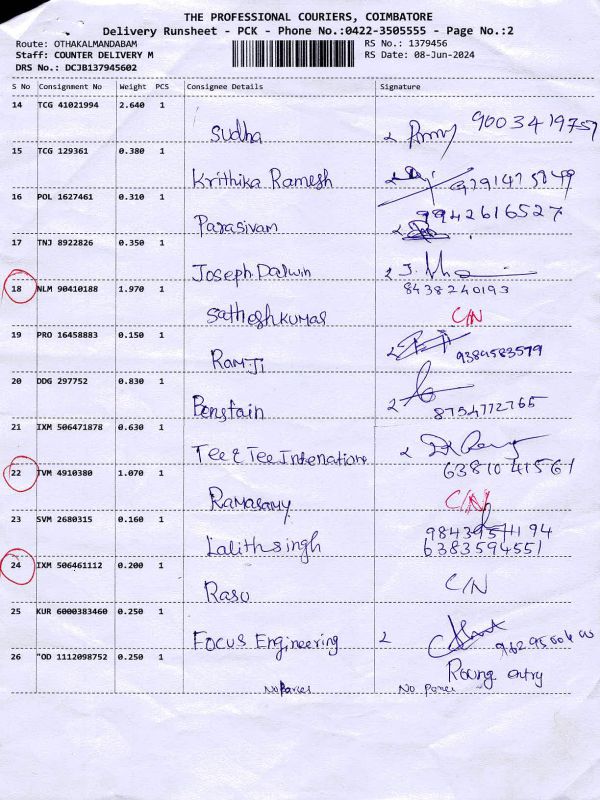 THE PROFESSIONAL COURIERS, COIMBATORE
Delivery Runsheet - PCK - Phone No.:0422-3505555 - Page No.:2
Route: OTHAKALMANDABAM
RS No.: 1379456
Staff: COUNTER DELIVERY M
RS Date: 08-Jun-2024
DRS No.: DCJB137945602
S No Consignment No Weight PCS Consignee Details Signature
14 TCG 41021994 2.640 1
Sudha 9003419757
15 TCG 129361 0.380 1
Krithika Ramesh
16 POL 1627461 0.310 1
Parasivam 9942616527
17 TNJ 8922826 0.350 1
Joseph Dalwin
18 NLM 90410188 1.970 1 8438240193
Satheshkumar C/N
19 PRO 16458883 0.150 1
RamJi 9389583579
20 DDG 297752 0.830 1
Benstain 8754772765
21 IXM 506471878 0.630 1
Tee & Tee International
6381041561
22 TVM 4910380 1.070 1
Ramasamy C/N
23 SVM 2680315 0.160 1
Lalithsingh 6383594551
24 IXM 506461112 0.200 1
Rasu C/N
25 KUR 6000383460 0.250 1
Focus Engineering
26 "OD 1112098752 0.250 1 Roung entry
No Parcel No Parcel